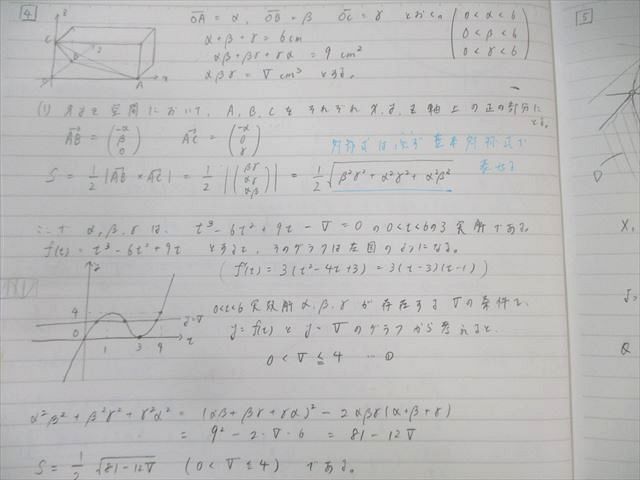 4
5
OA = α, OB = β OC = γ とおく。
0 < α < 6
0 < β < 6
0 < γ < 6
α + β + γ = 6cm
αβ + βγ + γα = 9 cm²
αβγ = V cm³ とする。
(1) xyz空間において, A, B, C をそれぞれ x, y, z 軸上の正の部分にとる。
AB = (-α β 0) AC = (-α 0 γ)
対称式は必ず基本対称式で表せる
S = 1/2 |AB × AC| = 1/2 |(βγ αγ αβ)| = 1/2 √(β²γ² + α²γ² + α²β²)
α, β, γ は t³ - 6t² + 9t - V = 0 の 0<t<6の3実解である。
f(t) = t³ - 6t² + 9t とすると, そのグラフは左図のようになる。
( f'(t) = 3(t² - 4t + 3) = 3(t - 3)(t - 1) )
0<t<6 実数解 α, β, γ が存在する V の条件で,
y = f(t) と y = V のグラフから考えると,
0 < V ≦ 4 … ①
y
4
0
1
3
y = V
t
α²β² + β²γ² + γ²α² = (αβ + βγ + γα)² - 2αβγ(α + β + γ)
= 9² - 2・V・6 = 81 - 12V
S = 1/2 √(81 - 12V) (0 < V ≦ 4) である。
D
Q